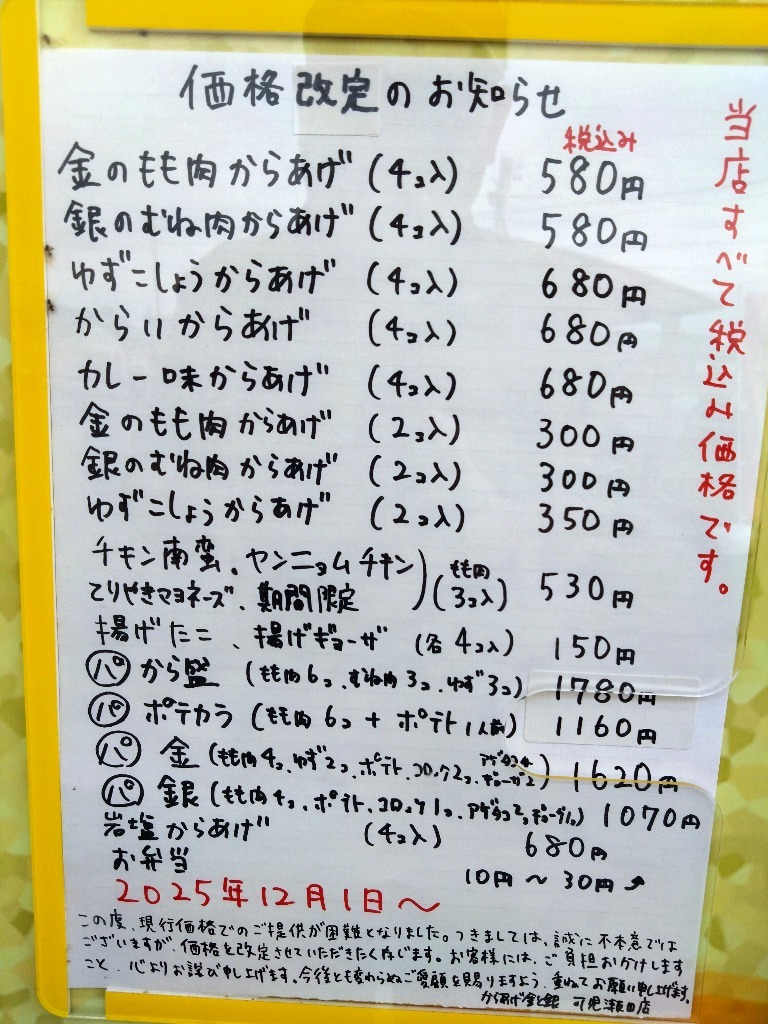 価格改定のお知らせ
税込み
金のもも肉からあげ (4コ入) 580円
銀のむね肉からあげ (4コ入) 580円
ゆずこしょうからあげ (4コ入) 680円
からいからあげ (4コ入) 680円
カレー味からあげ (4コ入) 680円
金のもも肉からあげ (2コ入) 300円
銀のむね肉からあげ (2コ入) 300円
ゆずこしょうからあげ (2コ入) 350円
チキン南蛮、ヤンニョムチキン
てりやきマヨネーズ、期間限定 (もも肉 3コ入) 530円
揚げたこ、揚げギョーザ (各4コ入) 150円
パ から盛 (もも肉6コ、むね肉3コ、ゆず3コ) 1780円
パ ポテカラ (もも肉6コ+ポテト1人前) 1160円
パ 金 (もも肉4コ、ゆず2コ、ポテト、コロッケ2コ、アゲタコ4 ギョーザ2) 1620円
パ 銀 (もも肉4コ、ポテト、コロッケ1コ、アゲタコ2コ) 1070円
岩塩からあげ (4コ入) 680円
お弁当 10円~30円↗
2025年12月1日~
この度、現行価格でのご提供が困難となりました。つきましては、誠に不本意では
ございますが、価格を改定させていただきたく存じます。お客様には、ご負担おかけします
こと、心よりお詫び申し上げます。今後とも変わらぬご愛顧を賜りますよう、重ねてお願い申し上げます。
からあげ金と銀 可児瀬田店
当店すべて税込み価格です。